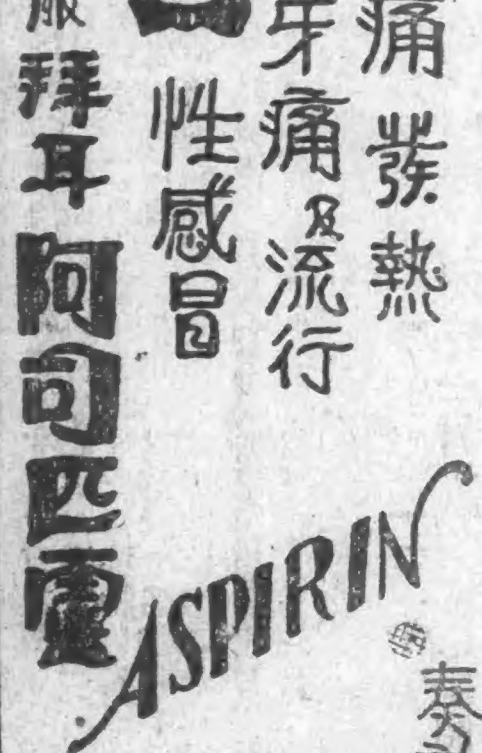 痛發熱
牙痛及流行
性感冒
服拜耳阿司匹靈
ASPIRIN
奏